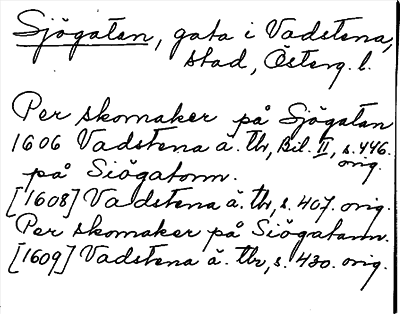 Sjögatan, gata i Vadstena,
stad, Österg. l.
Per skomaker på Sjögatan
1606 Vadstena ä. tb, Bil. II, s. 446.
orig.
på Siögatonn.
[1608] Vadstena ä. tb, s. 407. orig.
Per skomaker på Siögatann.
[1609] Vadstena ä. tb, s. 430. orig.